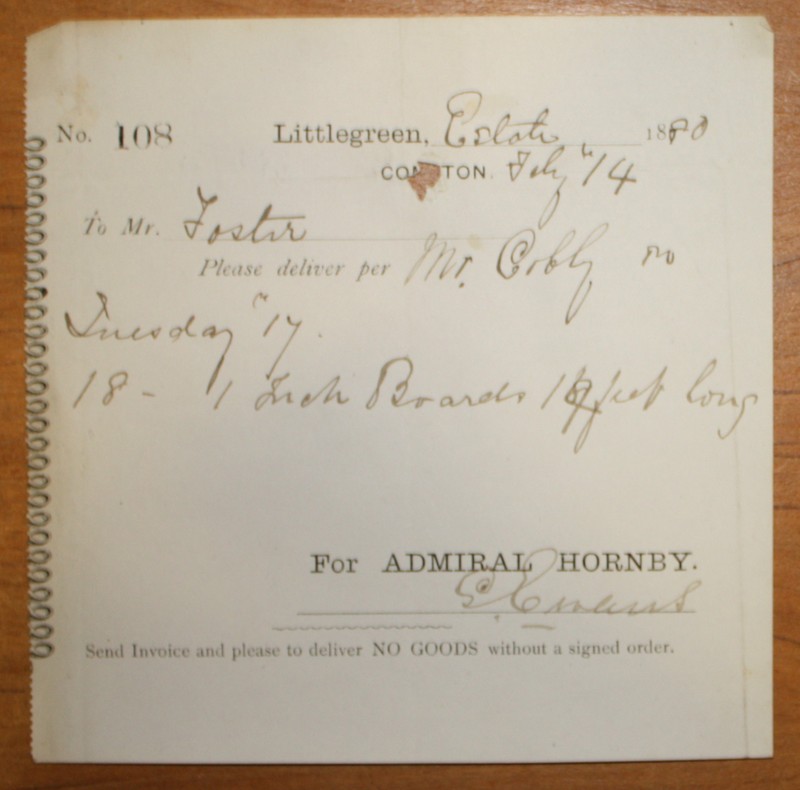 No. 108 Littlegreen, Estate 1880
COMPTON. Feby "14
To Mr. Foster
Please deliver per Mr. Cobby on
Tuesday "17.
18 - 1 Inch Boards feet long
For ADMIRAL HORNBY.
G. Ewens
Send Invoice and please to deliver NO GOODS without a signed order.